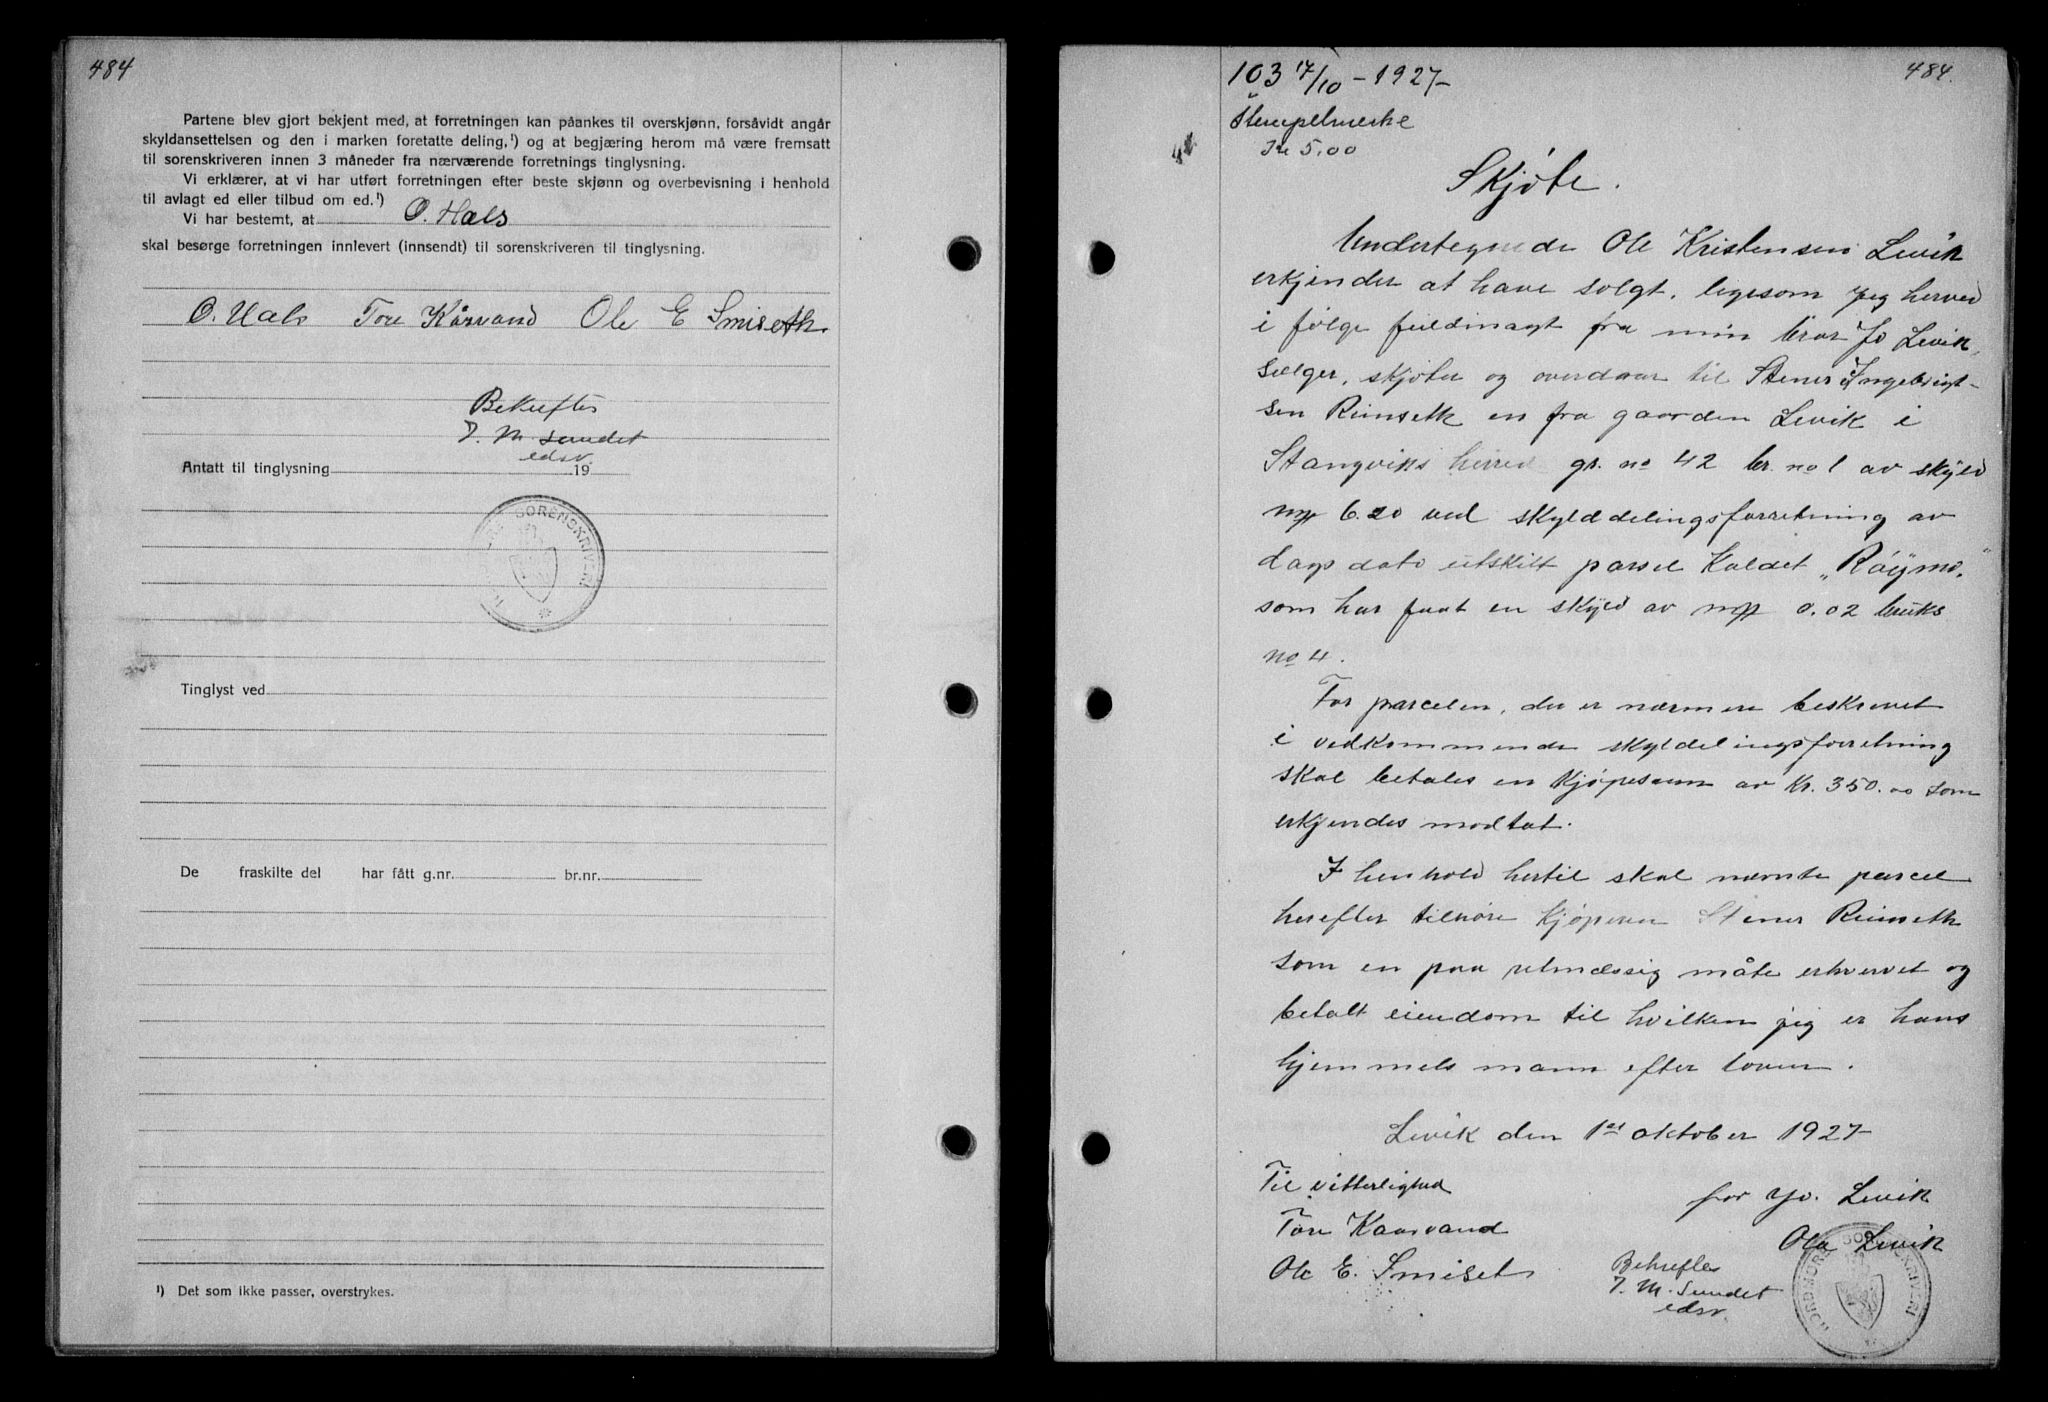 484
Partene blev gjort bekjent med, at forretningen kan påankes til overskjønn, forsåvidt angår
skyldansettelsen og den i marken foretatte deling,¹) og at begjæring herom må være fremsatt
til sorenskriveren innen 3 måneder fra nærværende forretnings tinglysning.
Vi erklærer, at vi har utført forretningen efter beste skjønn og overbevisning i henhold
til avlagt ed eller tilbud om ed.¹)
Vi har bestemt, at O. Hals
skal besørge forretningen innlevert (innsendt) til sorenskriveren til tinglysning.
O. Hals Tore Kårvand Ole E Smiseth.
Bekreftes
J. M. Sundet
edsv.
Antatt til tinglysning 19
SORENSKRIVERI
Tinglyst ved
De fraskilte del har fått g.nr. br.nr.
¹) Det som ikke passer, overstrykes.
103 17/10 - 1927
484.
Stempelmerke
Kr 5.00
Skjøte.
Undertegnede Ole Kristensen Levik
erkjender at have solgt, ligesom jeg herved
i følge fuldmagt fra min bror Jo Levik,
sælger, skjøter og overdrar til Stener Ingebrigt-
sen Rimseth en fra gaarden Levik i
Stangviks herred gr. no 42 br. no 1 av skyld
mrk 6.20 ved skylddelingsforretning av
dags dato utskilt parsel kaldet „Röymo"
som har faat en skyld av mrk 0.02 bruks
no 4.
For parcelen, der er nærmere beskrevet
i vedkommende skyldelingsforretning
skal betales en kjøpesum av kr. 350.00 som
erkjendes modtat.
I henhold hertil skal nævnte parcel
herefter tilhøre kjøperen Stener Rimseth
som en paa retmæssig måte erhvervet og
betalt eiendom til hvilken jeg er hans
hjemmels mann efter loven.
Levik den 1ste oktober 1927
Til vitterlighed
for Jo. Levik
Tore Kaarvand
Ola Levik
Ole E. Smiset
Bekreftes
J. M. Sundet
edsv.
NORDMØRE SORENSKRIVERI